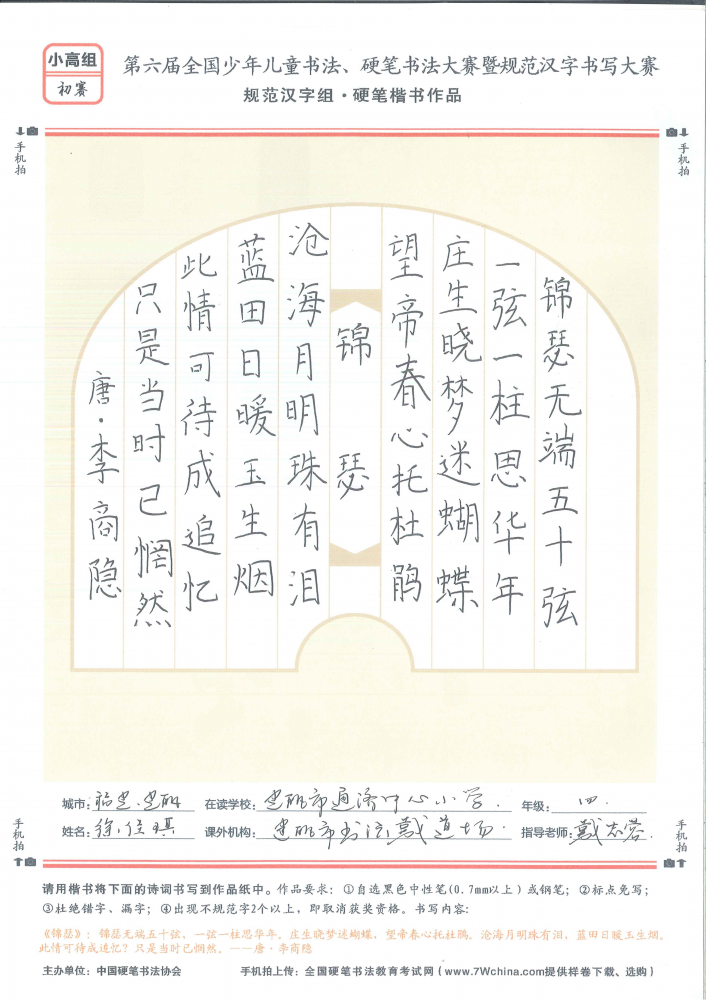 小高组
初赛
第六届全国少年儿童书法、硬笔书法大赛暨规范汉字书写大赛
规范汉字组·硬笔楷书作品
手机拍
手机拍
锦瑟无端五十弦
一弦一柱思华年
庄生晓梦迷蝴蝶
望帝春心托杜鹃
锦瑟
沧海月明珠有泪
蓝田日暖玉生烟
此情可待成追忆
只是当时已惘然
唐·李商隐
城市: 在读学校: 中心小学 年级: 四
姓名: 课外机构: 指导老师:
手机拍
手机拍
请用楷书将下面的诗词书写到作品纸中。作品要求：①自选黑色中性笔(0.7mm以上)或钢笔；②标点免写；
③杜绝错字、漏字；④出现不规范字2个以上，即取消获奖资格。书写内容:
《锦瑟》：锦瑟无端五十弦，一弦一柱思华年。庄生晓梦迷蝴蝶，望帝春心托杜鹃。沧海月明珠有泪，蓝田日暖玉生烟。
此情可待成追忆？只是当时已惘然。——唐·李商隐
主办单位：中国硬笔书法协会 手机拍上传：全国硬笔书法教育考试网（www.7Wchina.com提供样卷下载、选购）